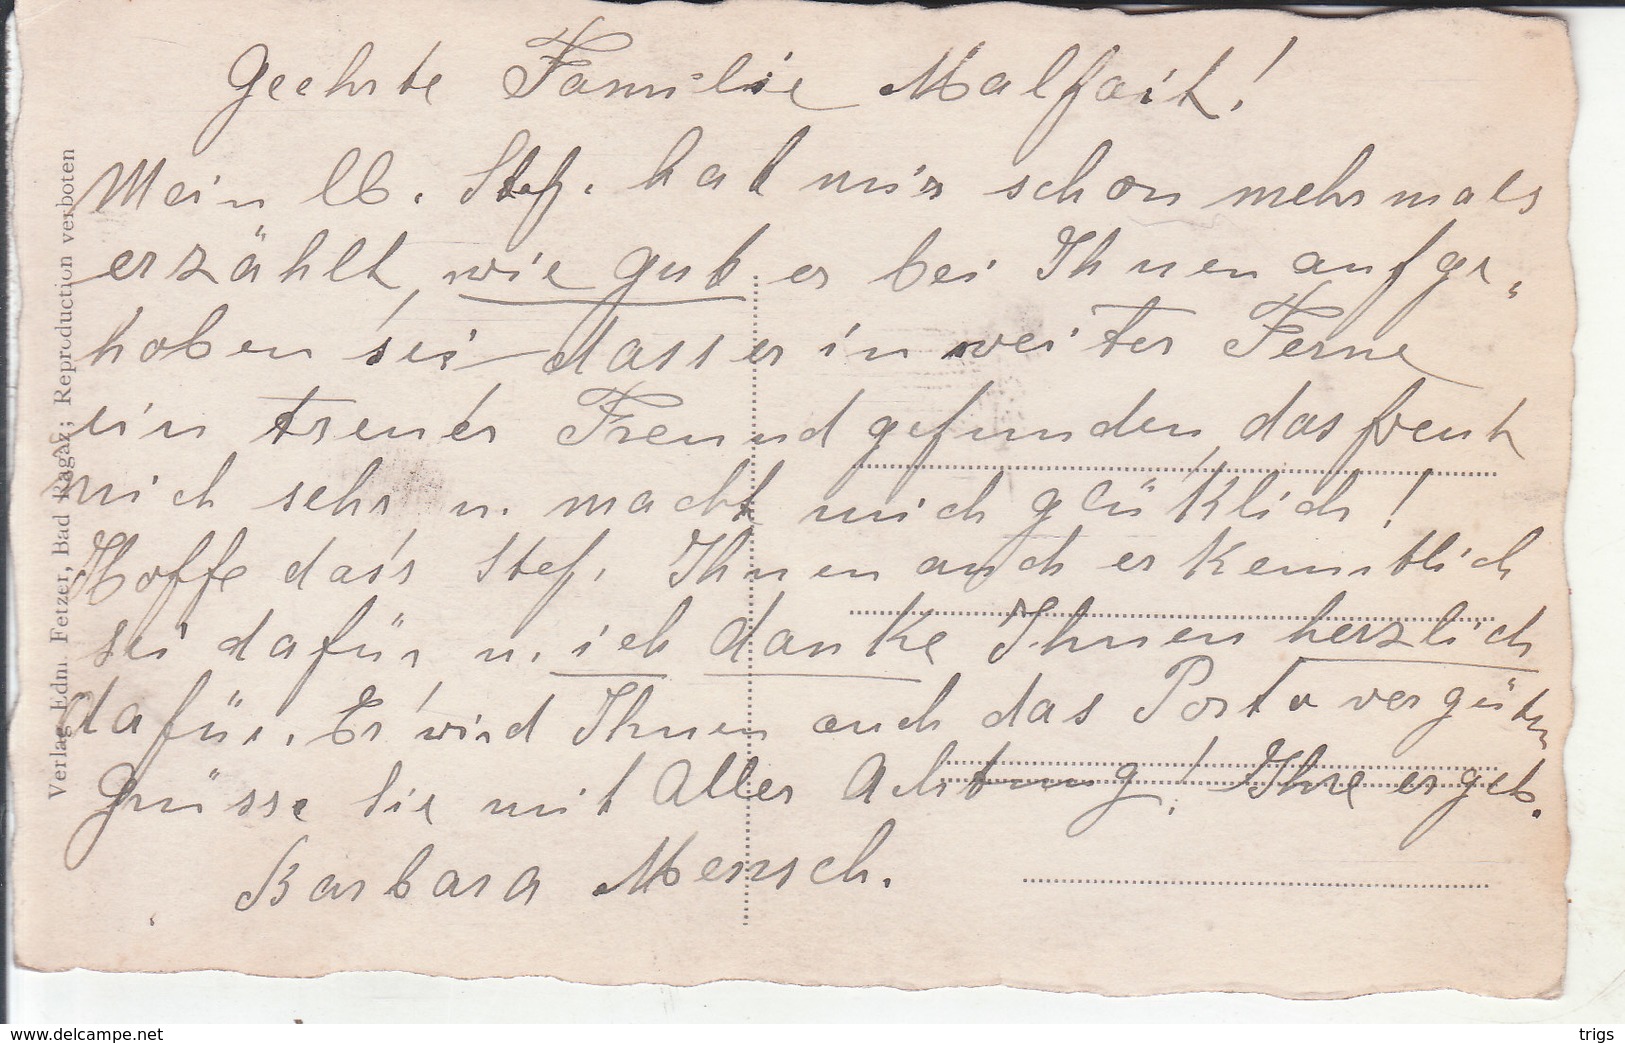 Geehrte Familie Malfait!
Mein lb. Stef. hat mir schon mehrmals
erzählt, wie gut er bei Ihnen aufge-
hoben sei dass er in weiter Ferne
ein treuer Freund gefunden, das freut
mich sehr u. macht mich glüklich!
Hoffe dass Stef. Ihnen auch erkenntlich
sei dafür u. ich danke Ihnen herzlich
dafür. Er wird Ihnen auch das Porto vergüten
Grüsse Sie mit aller Achtung! Ihre ergeb.
Barbara Mensch.
Verlag Edm. Fetzer, Bad Ragaz; Reproduction verboten
www.delcampe.net
trigs